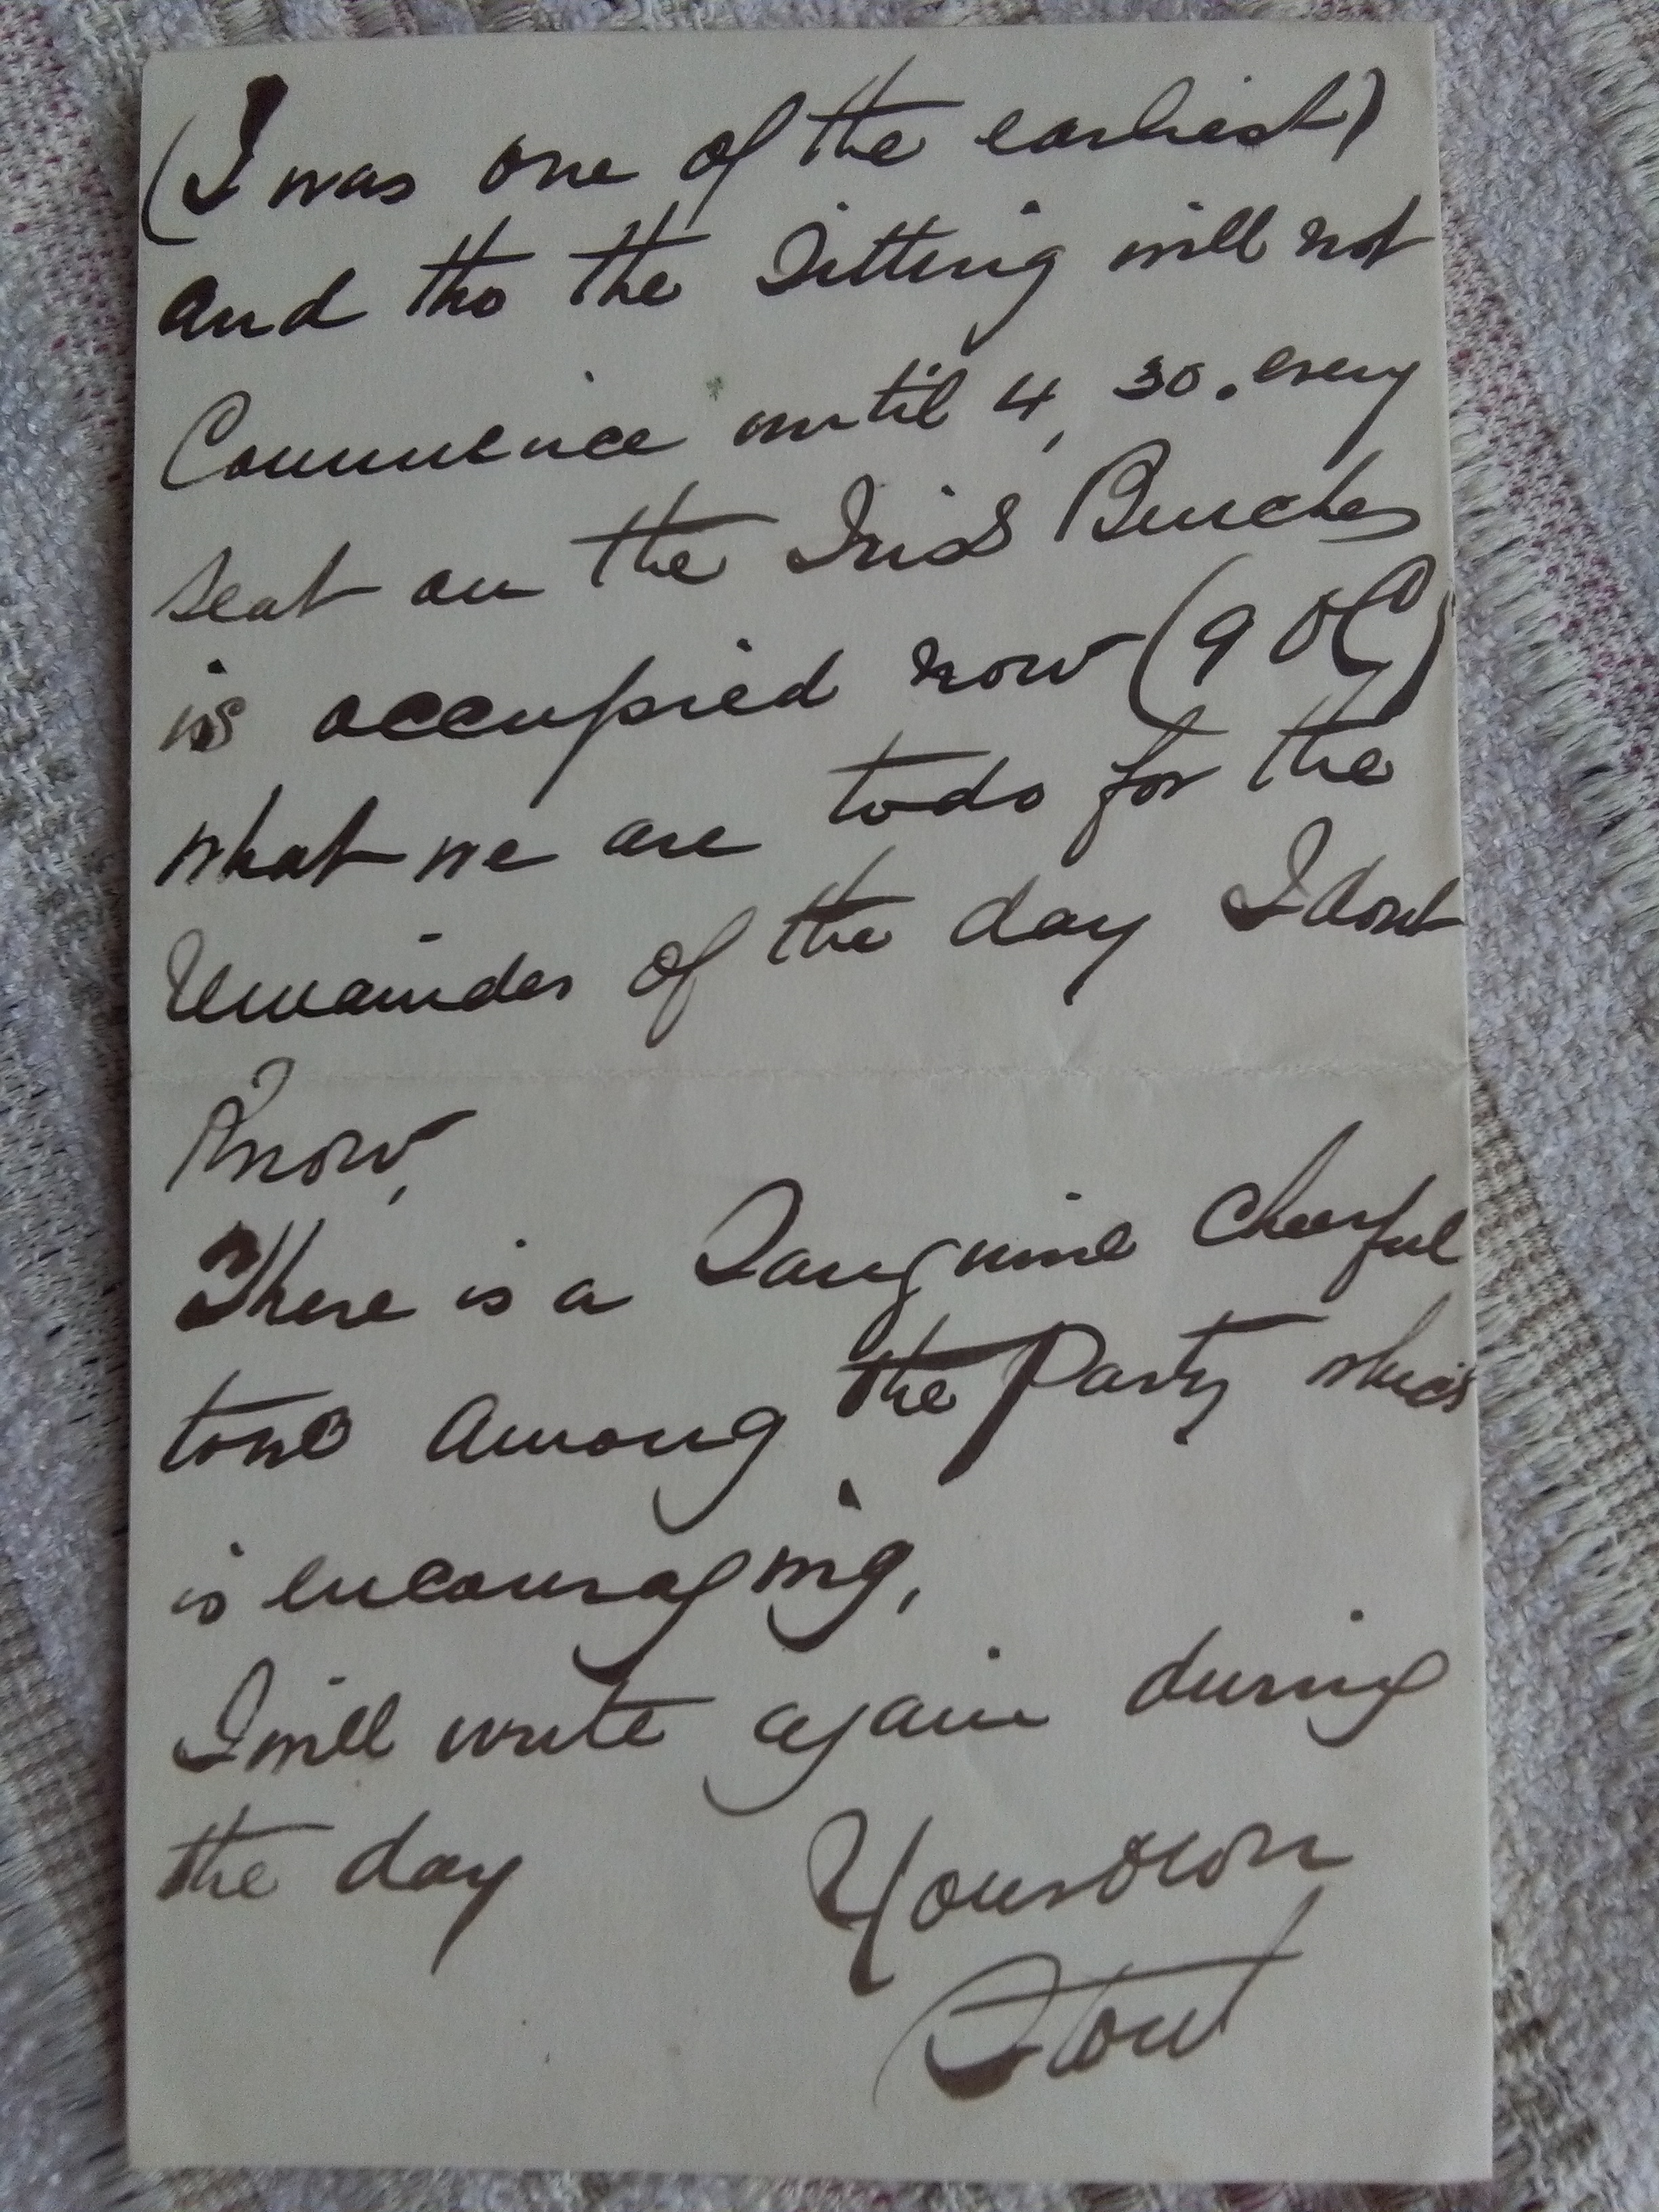 (I was one of the earliest)
and tho the Sitting will not
Commence until 4, 30. every
seat on the Irish Benches
is occupied now (9 OC)
what we are to do for the
remainder of the day I dont
Know,
There is a Sanguine Cheerful
tone among the Party which
is encouraging,
I will write again during
the day Your own
Stout